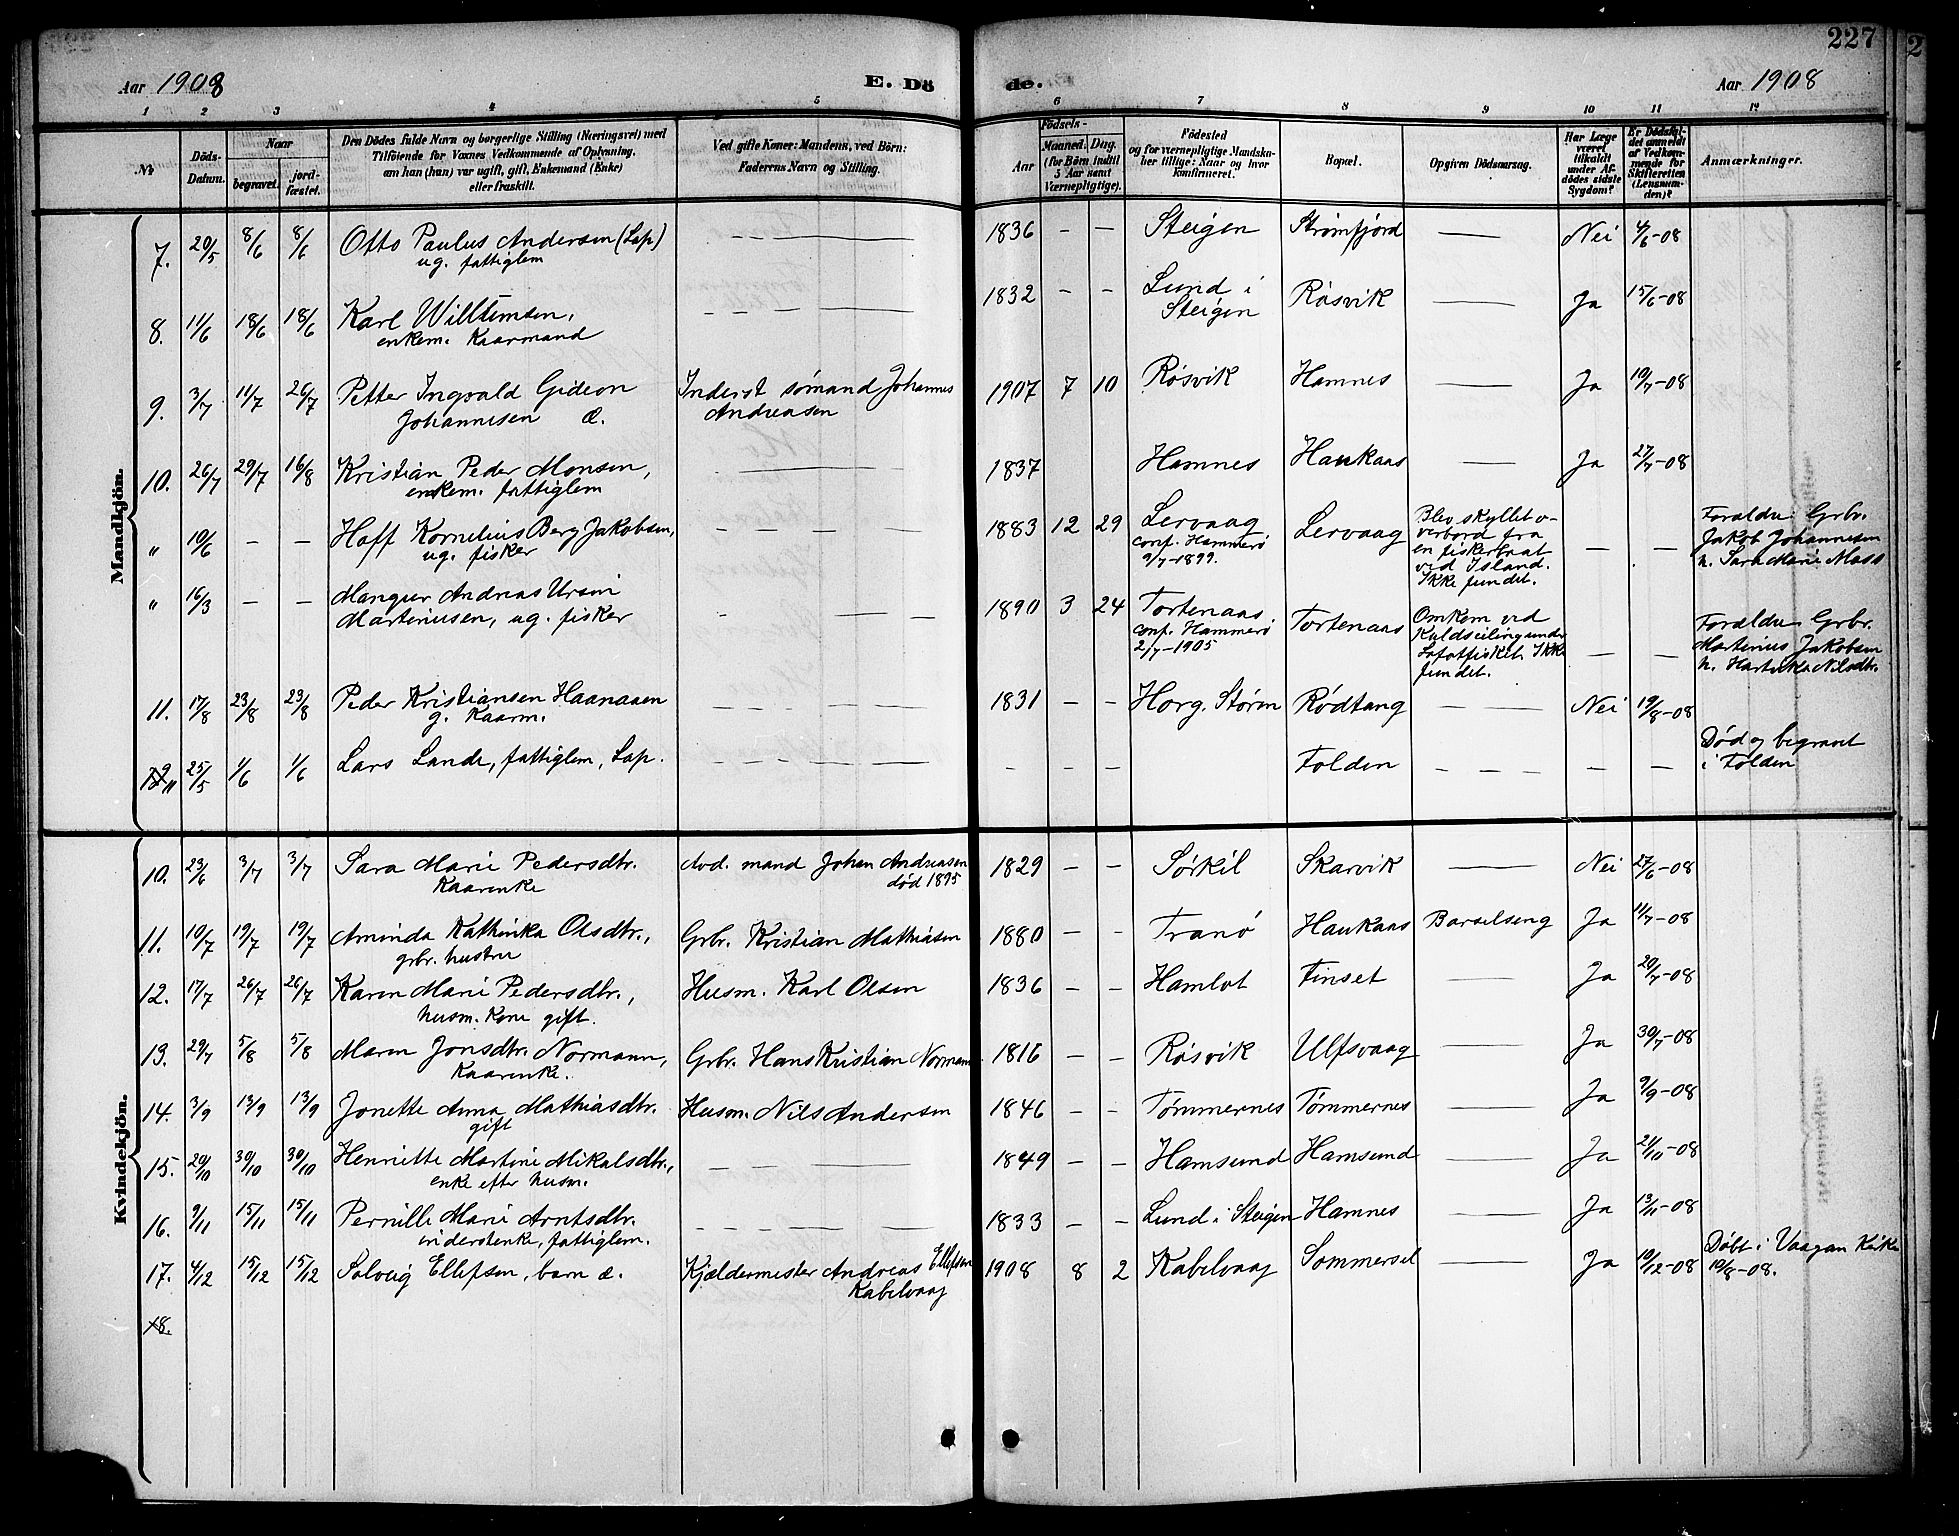 227
2
Aar 1908 E. Dö de. Aar 1908
1 2 3 4 5 6 7 8 9 10 11 12
No
Döds-Datum.
Naar
begravet.
jord-fæstet.
Den Dödes fulde Navn og borgerlige Stilling (Næringsvei) med
Tilföiende for Voxnes Vedkommende af Oplysning,
om han (hun) var ugift, gift, Enkemand (Enke)
eller fraskilt.
Ved gifte Koner: Mandens, ved Börn:
Faderens Navn og Stilling.
Födsels-
Aar
Maaned. Dag.
(for Börn indtil
5 Aar samt
Værnepligtige).
Födested
og for værnepligtige Mandska-
ber tillige: Naar og hvor
konfirmeret.
Bopæl.
Opgiven Dödsaarsag.
Har Læge
været
tilkaldt
under Af-
dödes sidste
Sygdom?
Er Dödsfal-
det anmeldt
af Vedkom-
mende for
Skifteretten
(Lensman-
den)?
Anmærkninger.
Mandkjön.
7. 20/5 8/6 8/6 Otto Paulus Andersen (Lap) 1836 - - Steigen Strømfjord Nei 4/6-08
ug. fattiglem
8. 11/6 18/6 18/6 Karl Willumsen, 1832 - - Lund i Røsvik Ja 15/6-08
enkem. Kaarmand Steigen
9. 3/7 11/7 26/7 Petter Ingvald Gideon Inderst sømand Johannes 1907 7 10 Røsvik Hamnes Ja 10/7-08
Johannesen æ. Andreasen
10. 26/7 29/7 16/8 Kristian Peder Monsen, 1837 Hamnes Haukaas Ja 27/7-08
enkem. fattiglem
" 10/6 - - Hoff Kornelius Berg Jakobsen, 1883 12 29 Lervaag Lervaag Blev skyllet o- Forældre: Grbr.
ug. fisker conf. Hammerø verbord fra Jakob Johannesen
9/7-1899. en fiskerbaat h. Sara Marie Mass
ved Island.
Ikke fundet.
" 16/3 - - Mangur Andreas Ursin 1890 3 24 Tortenaas Tortenaas Omkom ved Forældre Grbr.
Martinusen, ug. fisker conf. Hammerø Kuldseiling under Martinus Jakobsen
2/7-1905 Lofotfisket. Ikke h. Nilsdtr.
fundet.
11. 17/8 23/8 23/8 Peder Kristiansen Haanaasen 1831 - - Horg. Støren Rødtang Nei 19/8-08
g. Kaarm.
" 25/5 1/6 1/6 Lars Lande, fattiglem, Lap. - - - Folden Død og begravet
i Folden
Kvindekjön.
10. 23/6 3/7 3/7 Sara Marie Pedersdtr. Avd. mand Johan Andreasen 1829 - - Sørkil Skarvik Nei 27/6-08
Kaarenke død 1895
11. 10/7 19/7 19/7 Aminda Kathinka Olsdtr., Grbr. Kristian Mathiasen 1880 - - Tranø Haukaas Barselseng Ja 11/7-08
grbr. hustru
12. 17/7 26/7 26/7 Karen Marie Pedersdtr., Husm. Karl Olsen 1836 - - Hamlot Finset Ja 20/7-08
husm. Kone gift.
13. 29/7 5/8 5/8 Maren Jonsdtr. Normann, Grbr. Hans Kristian Normann 1816 - - Røsvik Ulfsvaag Ja 30/7-08
Kaarenke.
14. 3/9 13/9 13/9 Jonette Anna Mathiasdtr. Husm. Nils Andersen 1846 - - Tømmernes Tømmernes Ja 9/9-08
gift
15. 20/10 30/10 30/10 Henriette Martine Mikalsdtr., 1849 - - Hamsund Hamsund Ja 21/10-08
enke efter husm.
16. 9/11 15/11 15/11 Pernille Marie Arntsdtr. 1833 - - Lund i Steigen Hamnes Ja 13/11-08
inderstenke, fattiglem.
17. 4/12 15/12 15/12 Solveig Ellefsen, barn æ. Kjældermester Andreas Ellefsen 1908 8 2 Kabelvaag Sommersel Ja 10/12-08 Døbt i Vaagan Kirke
Kabelvaag 19/8-08.
18.